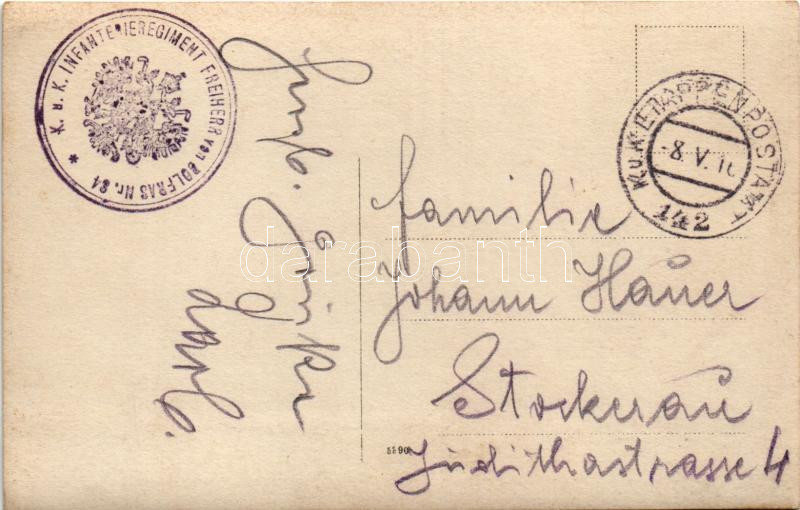 K. u. K. INFANTERIEREGIMENT FREIHERR von BOLFRAS Nr. 84 *
K.u.K. ETAPPENPOSTAMT
-8.V.16
142
Familie
Johann Hauer
Stockerau
Judithastrasse 4
5590
Grüße
darabanth.com